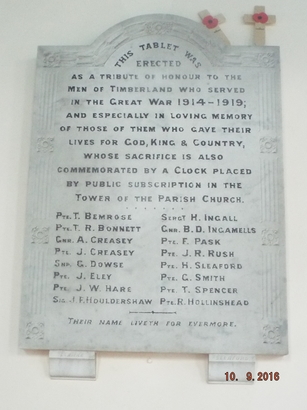 THIS TABLET WAS
ERECTED
AS A TRIBUTE OF HONOUR TO THE
MEN OF TIMBERLAND WHO SERVED
IN THE GREAT WAR 1914-1919;
AND ESPECIALLY IN LOVING MEMORY
OF THOSE OF THEM WHO GAVE THEIR
LIVES FOR GOD, KING & COUNTRY,
WHOSE SACRIFICE IS ALSO
COMMEMORATED BY A CLOCK PLACED
BY PUBLIC SUBSCRIPTION IN THE
TOWER OF THE PARISH CHURCH.
PTE. T. BEMROSE
PTE. T. R. BONNETT
GNR. A. CREASEY
PTE. J. CREASEY
SNR. G. DOWSE
PTE. J. ELEY
PTE. J. W. HARE
SIG. J. F. HOULDERSHAW
SERGT H. INGALL
GNR. B. D. INGAMELLS
PTE. F. PASK
PTE. J. R. RUSH
PTE. H. SLEAFORD
PTE. C. SMITH
PTE. T. SPENCER
PTE. R. HOLLINSHEAD
THEIR NAME LIVETH FOR EVERMORE.
10. 9.2016